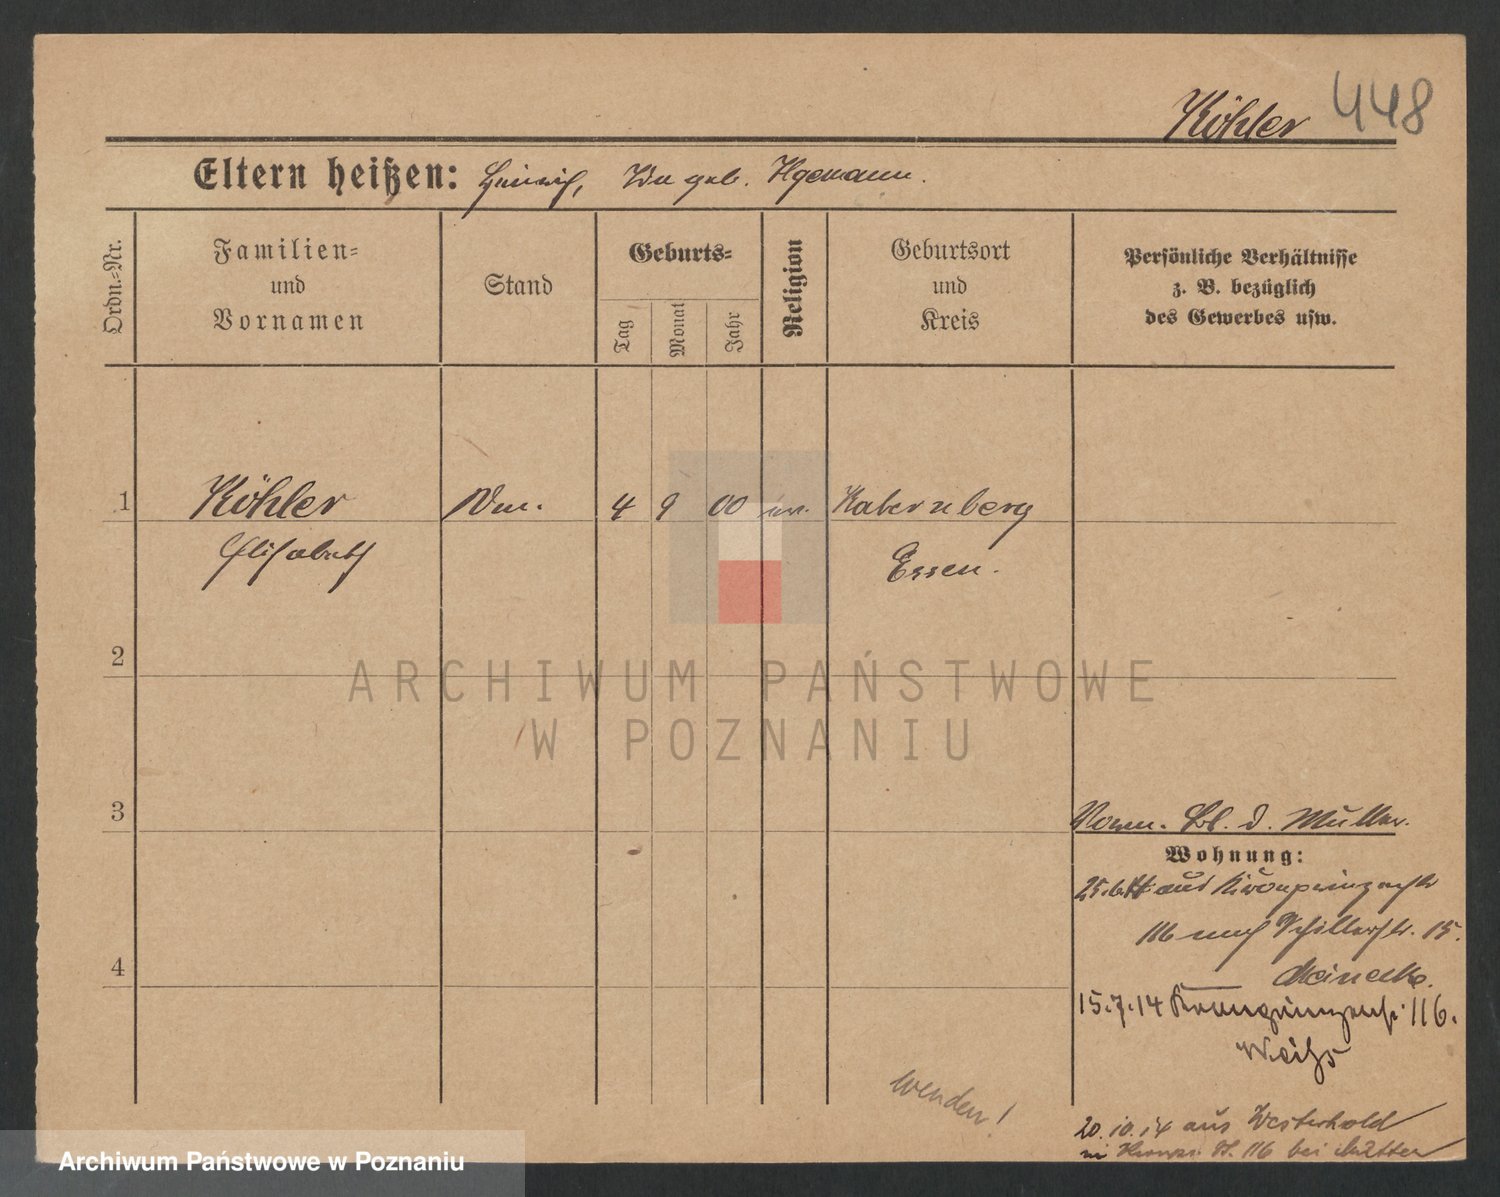 Köhler 448
Eltern heißen: Heinrich, geb. Ilgemann.
Ordn.-Nr.
Familien-
und
Vornamen
Stand
Geburts-
Tag
Monat
Jahr
Religion
Geburtsort
und
Kreis
Persönliche Verhältnisse
z. B. bezüglich
des Gewerbes usw.
1 Köhler 4 9 00 ev. Katernberg
Elisabeth Essen.
2
ARCHIWUM PAŃSTWOWE
W POZNANIU
3
Vorm. d. Müller.
Wohnung:
aus Kronprinzenstr
116 nach Schillerstr. 15.
4
Meinecke.
15.7.14 Kronprinzenstr. 116.
Weiß
wenden!
20.10.14 aus Westerhold
in Kronpr. St. 116 bei Mutter
Archiwum Państwowe w Poznaniu